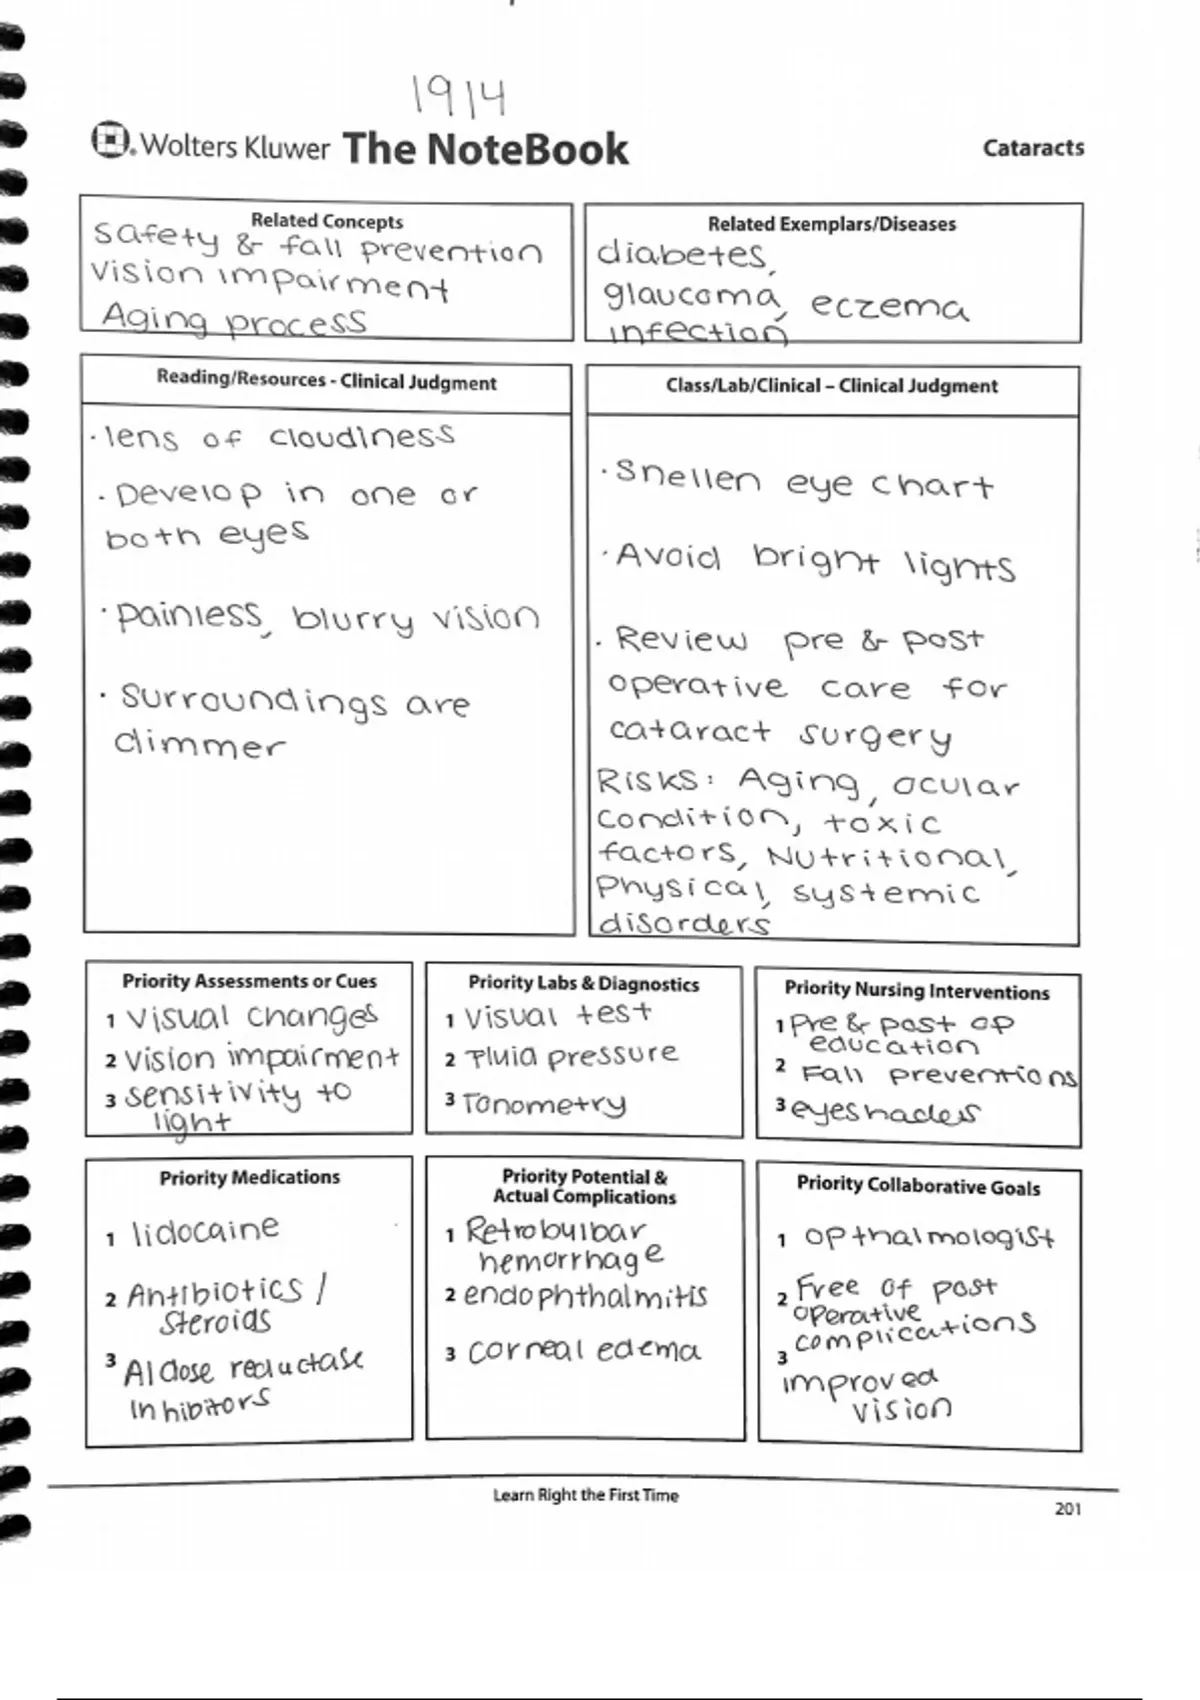 1914
Wolters Kluwer The NoteBook
Cataracts
Related Concepts
Safety & fall prevention
Vision impairment
Aging process
Related Exemplars/Diseases
diabetes,
glaucoma, eczema
infection
Reading/Resources - Clinical Judgment
· lens of cloudiness
· Develop in one or
both eyes
· Painless, blurry vision
· Surroundings are
dimmer
Class/Lab/Clinical – Clinical Judgment
· Snellen eye chart
· Avoid bright lights
· Review pre & post
operative care for
cataract surgery
Risks: Aging, ocular
condition, toxic
factors, Nutritional,
Physical, systemic
disorders
Priority Assessments or Cues
1 Visual changes
2 Vision impairment
3 sensitivity to
light
Priority Labs & Diagnostics
1 Visual test
2 Fluid pressure
3 Tonometry
Priority Nursing Interventions
1 Pre & post op
education
2 Fall preventions
3 eyeshaders
Priority Medications
1 lidocaine
2 Antibiotics /
Steroids
3 Aldose reductase
Inhibitors
Priority Potential &
Actual Complications
1 Retrobulbar
hemorrhage
2 endophthalmitis
3 corneal edema
Priority Collaborative Goals
1 opthalmologist
2 Free of post
operative
complications
3
improved
vision
Learn Right the First Time
201